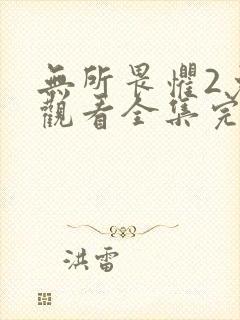 無所畏懼2
觀看全集完
洪雷